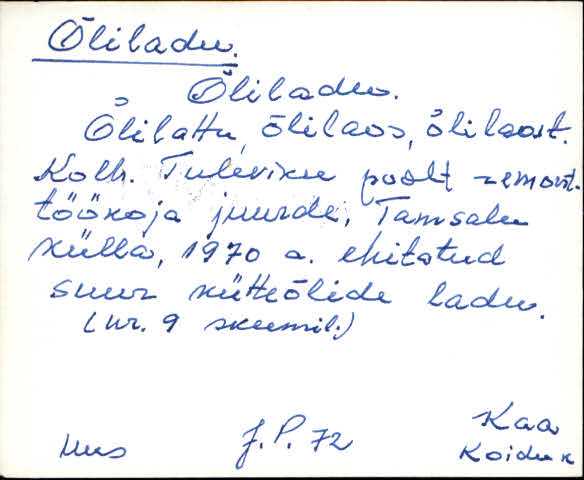 Õliladu.
Õliladu.
Õlilattu, õlilaos, õlilaost.
Kolh. Tuleviku poolt remont-
töökoja juurde, Tamsalu
külla, 1970 a. ehitatud
suur kütteõlide ladu.
(nr. 9 skeemil.)
Kaa
J. P. 72
Koidu k